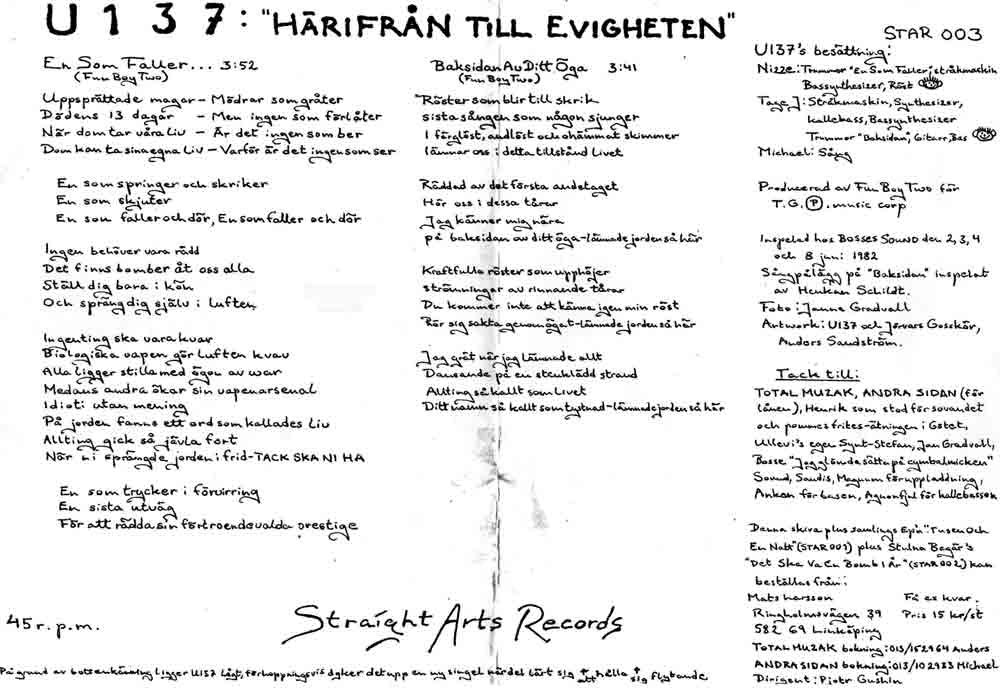 U 1 3 7 : "HÄRIFRÅN TILL EVIGHETEN"
STAR 003
En Som Faller... 3:52
(Fun Boy Two)
Uppsprättade magar – Mödrar som gråter
Dödens 13 dagar – Men ingen som förlåter
När dom tar våra liv – Är det ingen som ber
Dom kan ta sina egna liv – Varför är det ingen som ser
En som springer och skriker
En som skjuter
En som faller och dör, En som faller och dör
Ingen behöver vara rädd
Det finns bomber åt oss alla
Ställ dig bara i kön
Och spräng dig själv i luften
Ingenting ska vara kvar
Biologiska vapen gör luften kvav
Alla ligger stilla med ögon av var
Medans andra ökar sin vapenarsenal
Idioti utan mening
På jorden fanns ett ord som kallades Liv
Allting gick så jävla fort
När ni sprängde jorden i frid-TACK SKA NI HA
En som trycker i förvirring
En sista utväg
För att rädda sin förtroendevalda prestige
45 r.p.m.
Baksidan Av Ditt Öga 3:41
(Fun Boy Two)
Röster som blir till skrik
sista sången som någon sjunger
I färglöst, andlöst och ohämmat skimmer
lämnar oss i detta tillstånd livet
Räddad av det första andetaget
Hör oss i dessa tårar
Jag känner mig nära
på baksidan av ditt öga-lämnade jorden så här
Kraftfulla röster som upphöjer
strömningar av rinnande tårar
Du kommer inte att känna igen min röst
Rör sig sakta genom ögat-lämnade jorden så här
Jag grät när jag lämnade allt
Dansande på en stenklädd strand
Allting så kallt som livet
Ditt namn så kallt som tystnad-lämnade jorden så här
Straight Arts Records
U137's besättning:
Nizze: Trummor "En Som Faller", stråkmaskin
Bassynthesizer, Röst
Tage J: Stråkmaskin, Synthesizer,
kallebass, Bassynthesizer
Trummor "Baksidan", Gitarr, Bas
Michael: Sång
Producerad av Fun Boy Two för
T.G. Ⓟ. music corp
Inspelad hos BOSSES SOUND den 2, 3, 4
och 8 juni 1982
Sångpålägg på "Baksidan" inspelat
av Henkan Schildt.
Foto: Janne Gradvall
Artwork: U137 och Gosskör,
Anders Sandström.
Tack till:
TOTAL MUZAK, ANDRA SIDAN (för
lånen), Henrik som stod för sovandet
och pommes frites-ätningen i Götet,
Ullevi's egen Synt-Stefan, Jan Gradvall,
Bosse "Jag glömde sätta på cymbalmicken"
Sound, Saudis, Magnum för uppladdning,
Ankan för basen, för kallebassen
Denna skiva plus samlings Ep'n "Tusen Och
En Natt" (STAR 001) plus Stulna Begär's
"Det Ska Va En Bomb I År" (STAR 002) kan
beställas från:
Mats Larsson Få ex kvar.
Ringholmsvägen 39 Pris 15 kr/st
582 69 Linköping
TOTAL MUZAK bokning: 013/152964 Anders
ANDRA SIDAN bokning: 013/102933 Michael
Dirigent: Piotr Gushin
På grund av bottenkänning ligger U137 lågt, förhoppningsvis dyker det upp en ny singel när del lärt sig att hålla sig flytande